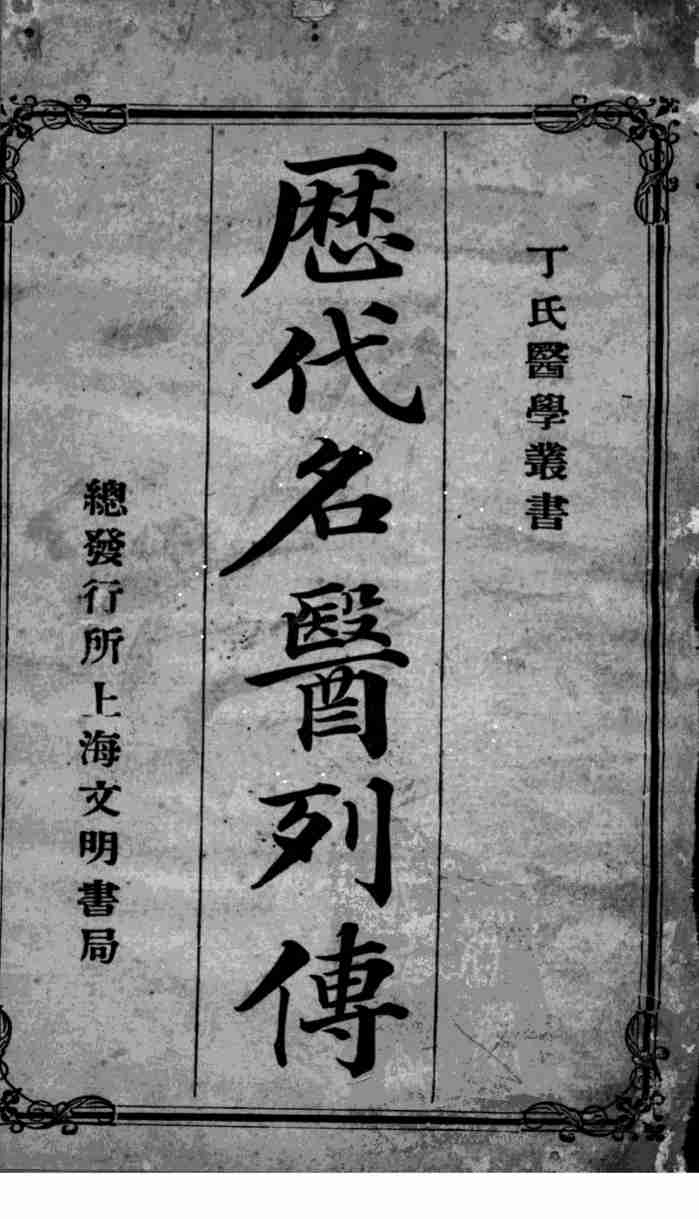 丁氏醫學叢書
歴代名醫列傳
總發行所上海文明書局